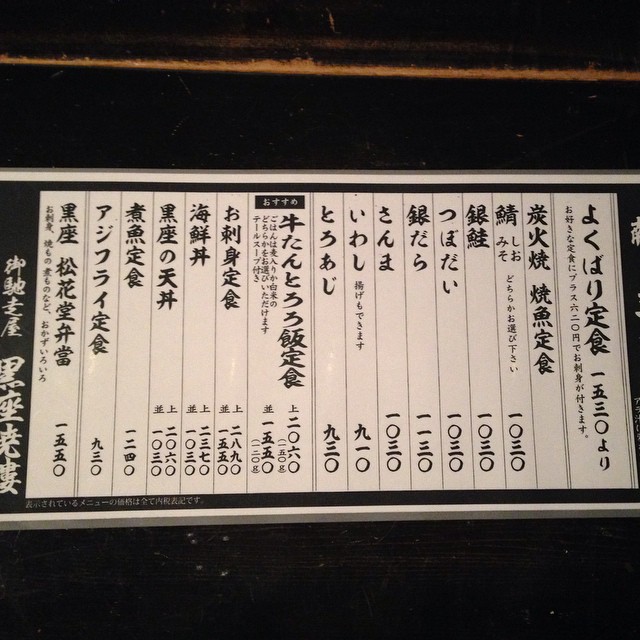 よくばり定食 一五三〇より
お好きな定食にプラス六二〇円でお刺身が付きます。
炭火焼 焼魚定食
鯖 しお みそ どちらかお選び下さい 一〇三〇
銀鮭 一〇三〇
つぼだい 一〇三〇
銀だら 一一三〇
さんま 一〇三〇
いわし 揚げもできます 九一〇
とろあじ 九三〇
おすすめ
牛たんとろろ飯定食 上 二〇六〇（一五〇g） 並 一五五〇（一二〇g）
ごはんは麦入りか白米の
どちらかをお選びいただけます
テールスープ付き
お刺身定食 上 二八九〇 並 一五五〇
海鮮丼 上 二三七〇 並 一〇三〇
黒座の天丼 上 二〇六〇 並 一〇三〇
煮魚定食 一二四〇
アジフライ定食 九三〇
黒座 松花堂弁當 一五五〇
お刺身、焼もの 煮ものなど、おかずいろいろ
御馳走屋 黒座暁樓
表示されているメニューの価格は全て内税表記です。